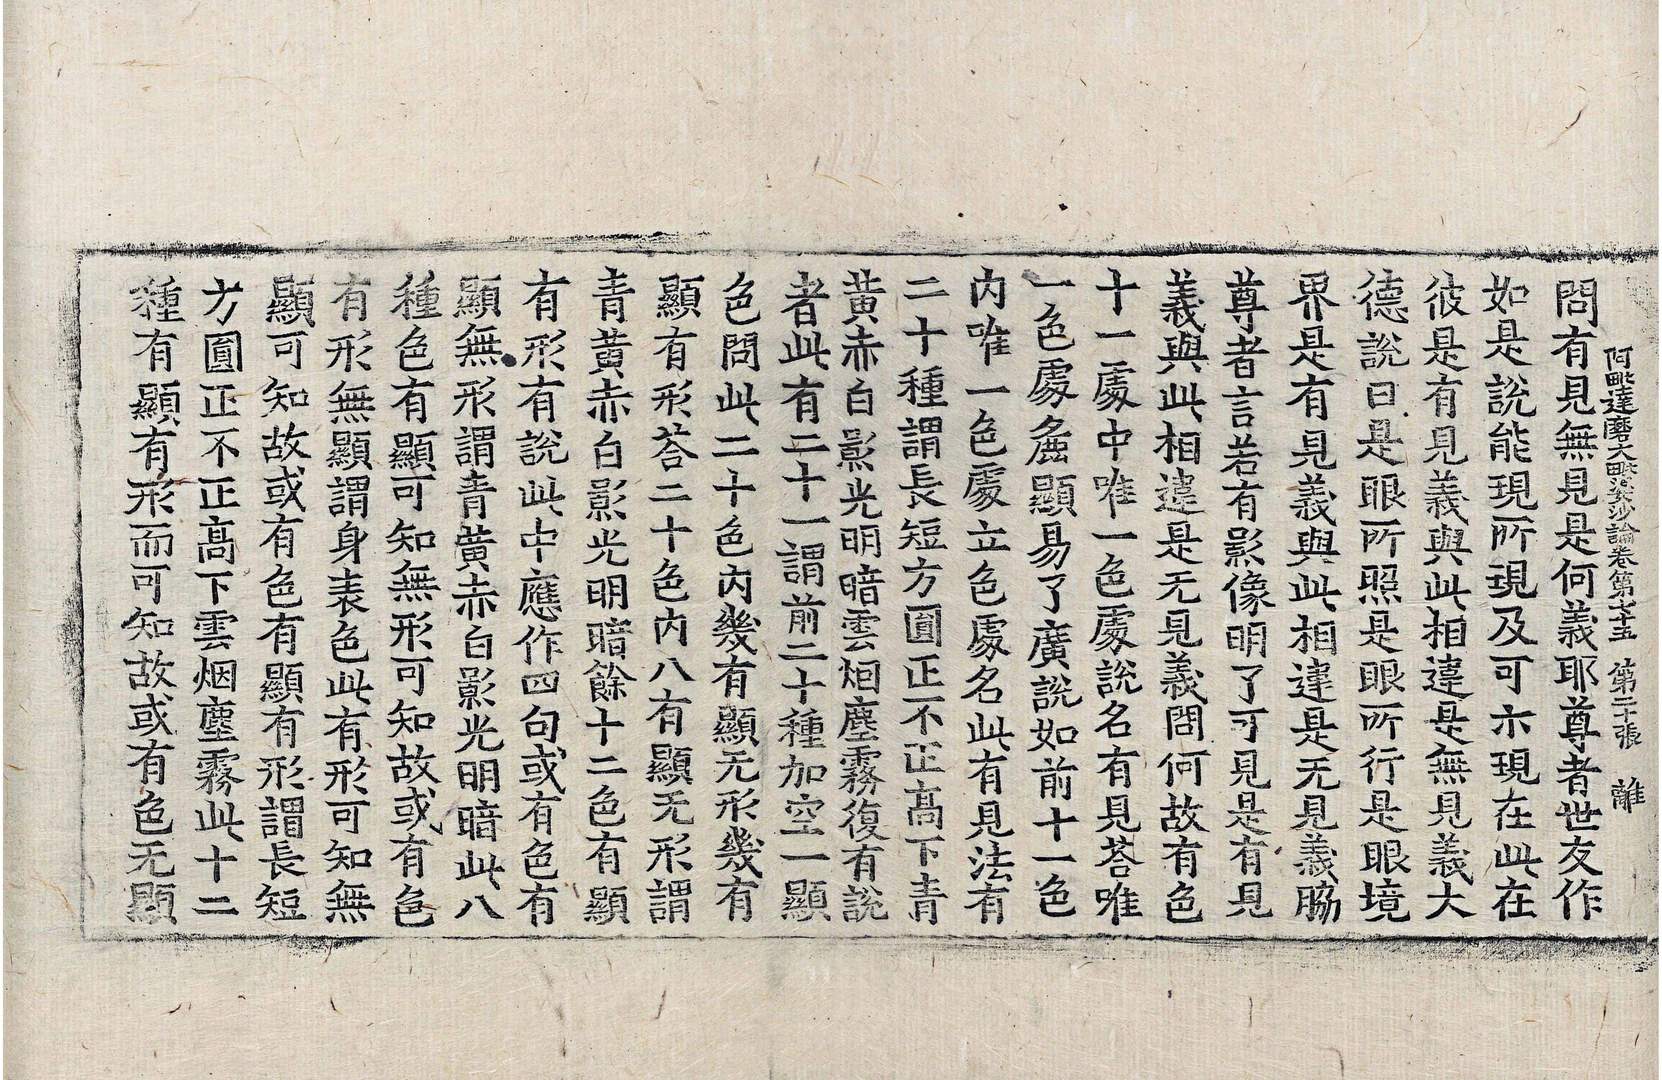 阿毗達磨大毗婆沙論卷第七十五 第二十張 離
問有見無見是何義耶尊者世友作
如是說能現所現及可示現在此在
彼是有見義與此相違是無見義大
德說曰是眼所照是眼所行是眼境
界是有見義與此相違是无見義脇
尊者言若有影像明了可見是有見
義與此相違是无見義問何故有色
十一處中唯一色處說名有見荅唯
一色處麁顯易了廣說如前十一色
內唯一色處立色處名此有見法有
二十種謂長短方圓正不正高下青
黃赤白影光明暗雲烟塵霧復有說
者此有二十一謂前二十種加空一顯
色問此二十色內幾有顯无形幾有
顯有形荅二十色內八有顯无形謂
青黃赤白影光明暗餘十二色有顯
有形有說此中應作四句或有色有
顯無形謂青黃赤白影光明暗此八
種色有顯可知無形可知故或有色
有形無顯謂身表色此有形可知無
顯可知故或有色有顯有形謂長短
方圓正不正高下雲烟塵霧此十二
種有顯有形而可知故或有色无顯